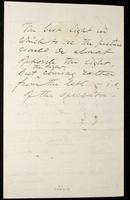 The best light in
which to see the picture
would be almost
opposite the light
the light
but coming rather
from the left — i.e.
of the spectator